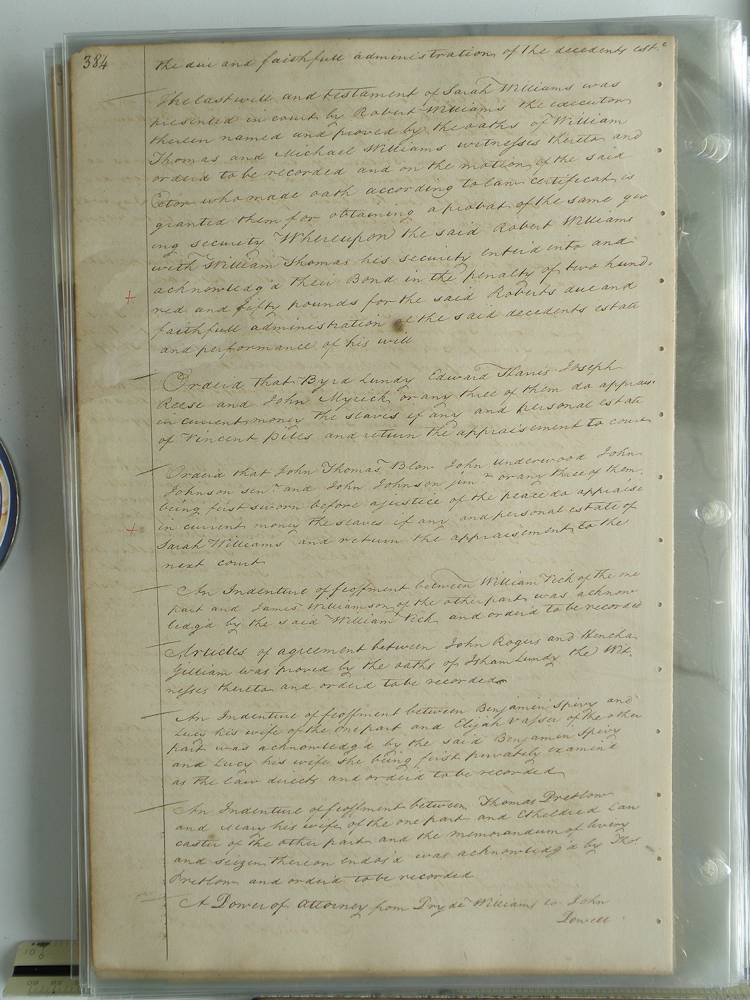 384
the due and faithfull administration of the decedents est.
The last will and testament of Sarah Williams was
presented in court by Robert Williams the executor
therein named and proved by the oaths of William
Thomas and Michael Williams witnesses thereto and
orderd to be recorded and on the motion of the said
Exctor who made oath according to law certificat is
granted them for obtaining a probat of the same giv
ing security Whereupon the said Robert Williams
with William Thomas his security enterd into and
acknowledg'd their Bond in the penalty of two hund.
red and fifty pounds for the said Roberts due and
faithfull administration of the said decedents estate
and performance of his will
Orderd that Byrd Lundy Edward Harris Joseph
Reese and John Myrick or any three of them do apprais.
in current money the slaves if any and personal estate
of Vincent Piles and return the appraisement to court
Orderd that John Thomas Blow John Underwood John
Johnson senr. and John Johnson junr. or any three of them
being first sworn before a justice of the peace do appraise
in current money the slaves if any and personal estate of
Sarah Williams and return the appraisement to the
next court
An Indenture of feoffment between William Vick of the one
part and James Williamson of the other part was acknow
ledg'd by the said William Vick and orderd to be recorded
Articles of agreement between John Rogers and Hencha
Gilliam was proved by the oaths of Isham Lundy the Wit.
nesses thereto and orderd to be recorded
An Indenture of feoffment between Benjamin Spivy and
Lucy his wife of the one part and Elijah Vasser of the other
part was acknowledg'd by the said Benjamin Spivy
and Lucy his wife she being first privately examind
as the law directs and orderd to be recorded
An Indenture of feoffment between Thomas Pretlow
and Mary his wife of the one part and Etheldred Lan
caster of the other part and the memorandum of livery
and seizen thereon endosd was acknowledg'd by Thos.
Pretlow and orderd to be recorded
A Power of attorney from Williams to John